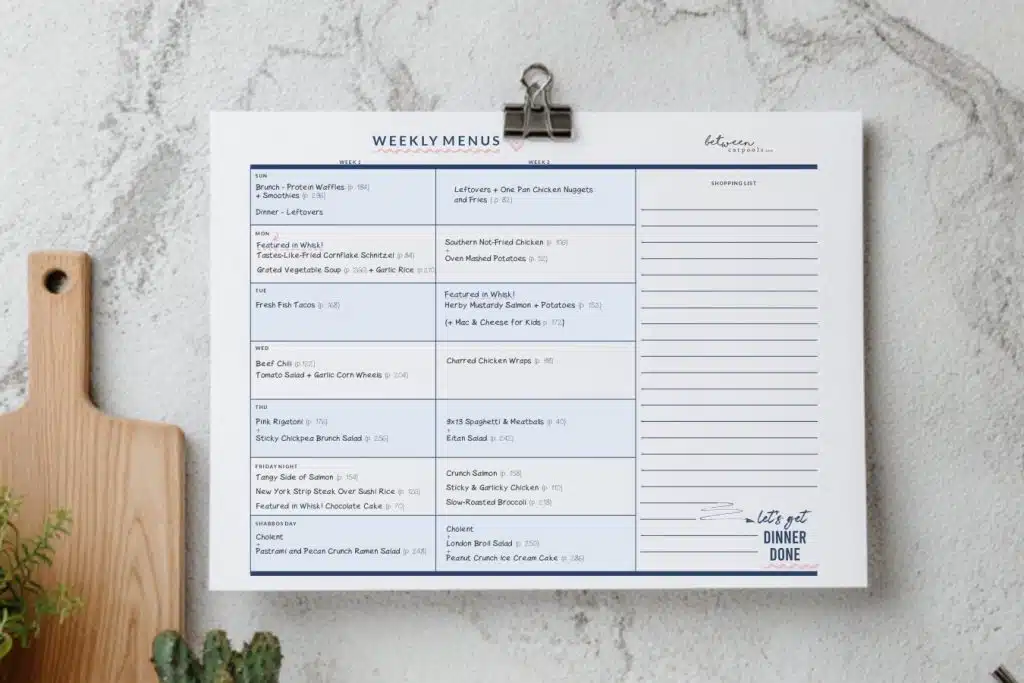 WEEKLY MENUS
between
carpools.com
WEEK 1
WEEK 2
SHOPPING LIST
SUN
Brunch - Protein Waffles (p. 184)
+ Smoothies
Dinner - Leftovers
Leftovers + One Pan Chicken Nuggets
and Fries (p. 82)
MON
Featured in Whisk!
Tastes-Like-Fried Cornflake Schnitzel (p 84)
Grated Vegetable Soup + Garlic Rice
Southern Not-Fried Chicken (p. 106)
+
Oven Mashed Potatoes
TUE
Fresh Fish Tacos (p. 168)
Featured in Whisk!
Herby Mustardy Salmon + Potatoes (p. 152)
(+ Mac & Cheese for Kids p. 172)
WED
Beef Chili
Tomato Salad + Garlic Corn Wheels (p. 204)
Charred Chicken Wraps (p. 88)
THU
Pink Rigatoni (p. 176)
+
Sticky Chickpea Brunch Salad (p. 256)
9x13 Spaghetti & Meatballs (p. 40)
+
Eitan Salad (p. 242)
FRIDAY NIGHT
Tangy Side of Salmon (p. 154)
New York Strip Steak Over Sushi Rice
Featured in Whisk! Chocolate Cake (p. 70)
Crunch Salmon (p. 158)
Sticky & Garlicky Chicken (p. 110)
Slow-Roasted Broccoli (p. 218)
SHABBOS DAY
Cholent
+
Pastrami and Pecan Crunch Ramen Salad (p. 248)
Cholent
+
London Broil Salad (p. 250)
+
Peanut Crunch Ice Cream Cake (p. 286)
let's get
DINNER
DONE